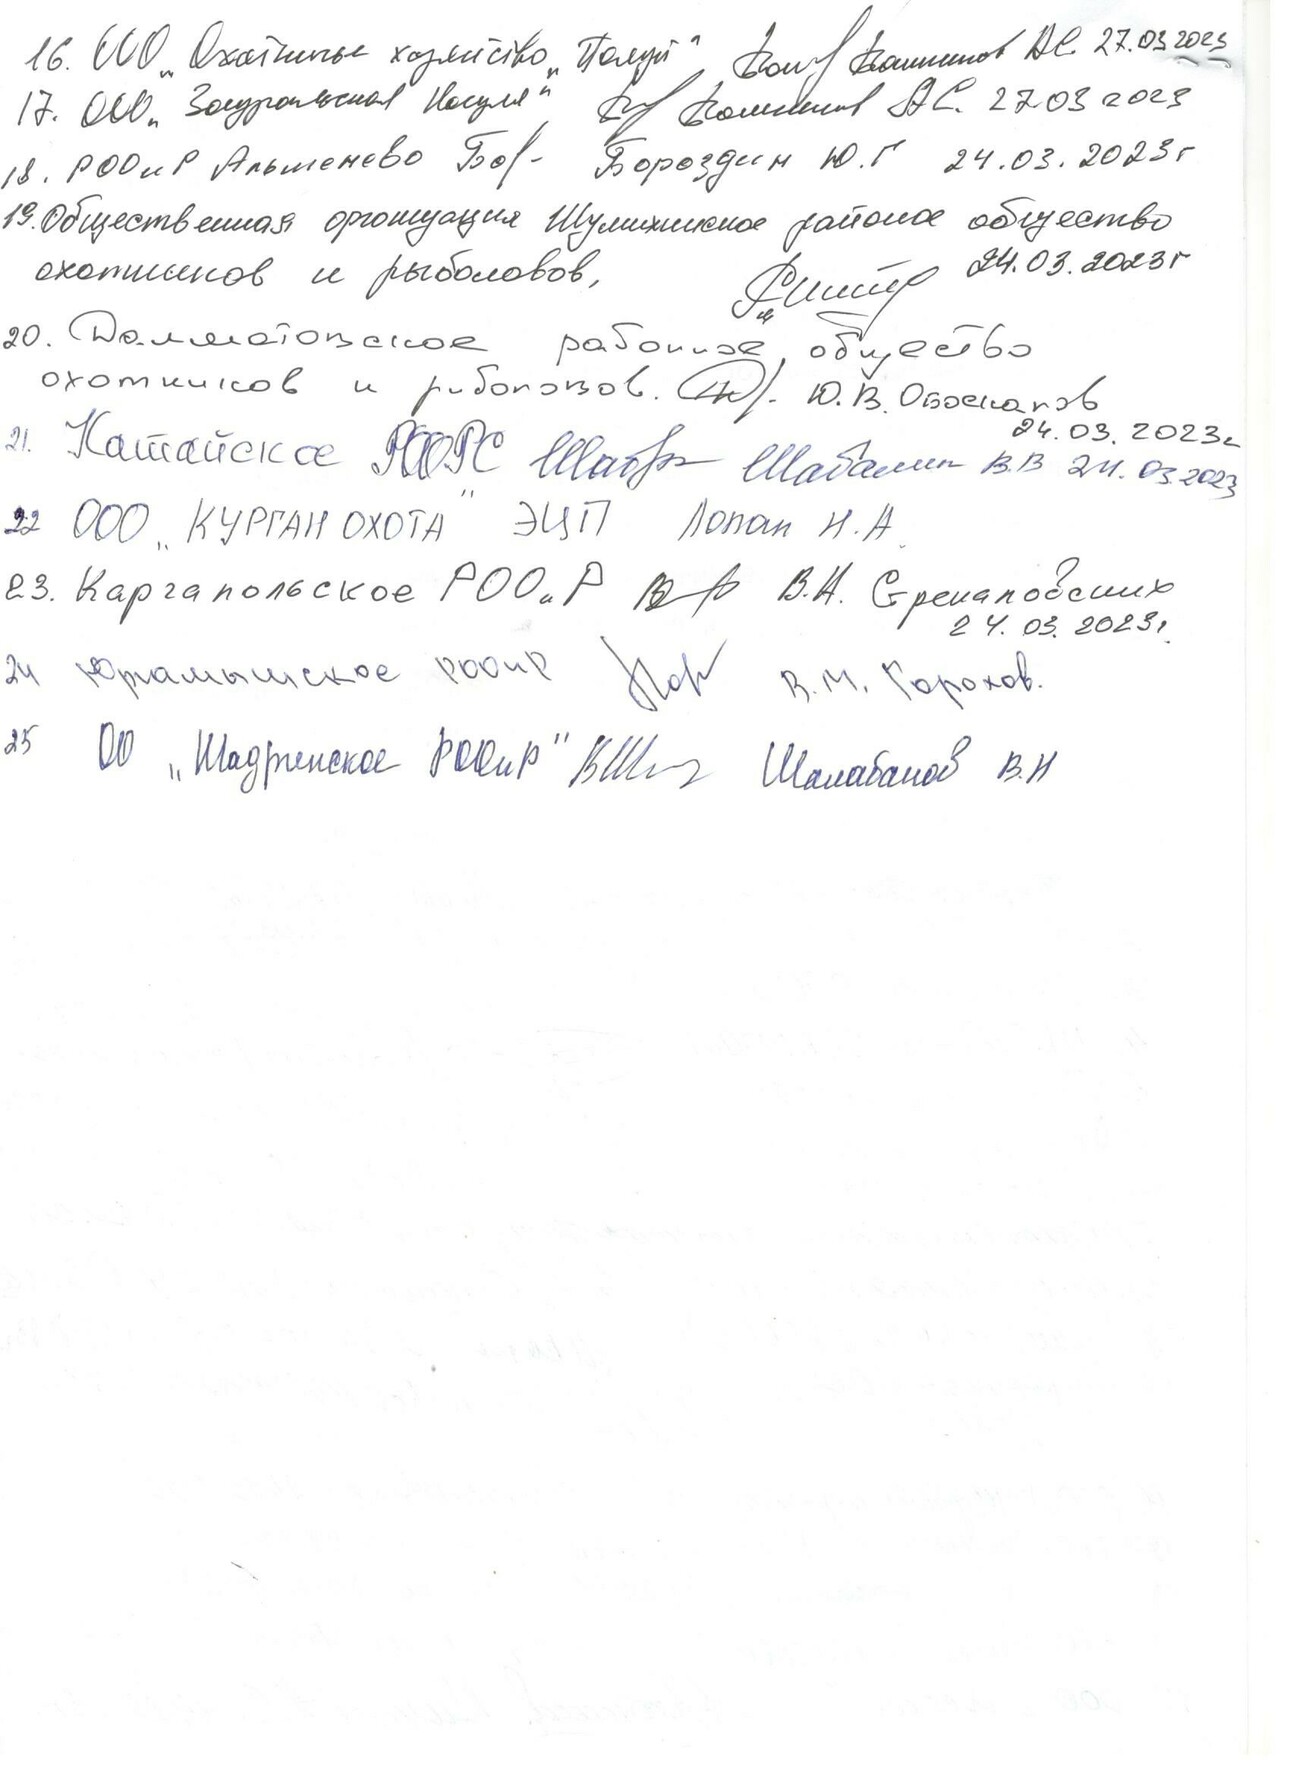 16. ООО „Охотничье хозяйство „Полуй" А.С. 27.03 2023
17. ООО „Зауральская Косуля" А.С. 27 03 2023
18. РООиР Альменево Бор- Бороздин Ю.Г 24.03.2023г
19. Общественная организация Шумихинское районое общество
охотников и рыболовов, 24.03.2023г
20. Далматовское районное общество
охотников и рыболовов. Ю.В.
24.03.2023г
21. Катайское РООРС Шабалин В.В 24.03.2023
22 ООО „КУРГАНОХОТА" ЭЦП Лопан Н.А.
23. Каргапольское РОО„Р В.Н.
24.03.2023г.
24 Юргамышское РООиР В.М. Горохов.
25 ОО „Шадринское РООиР" Шалабанов В.Н